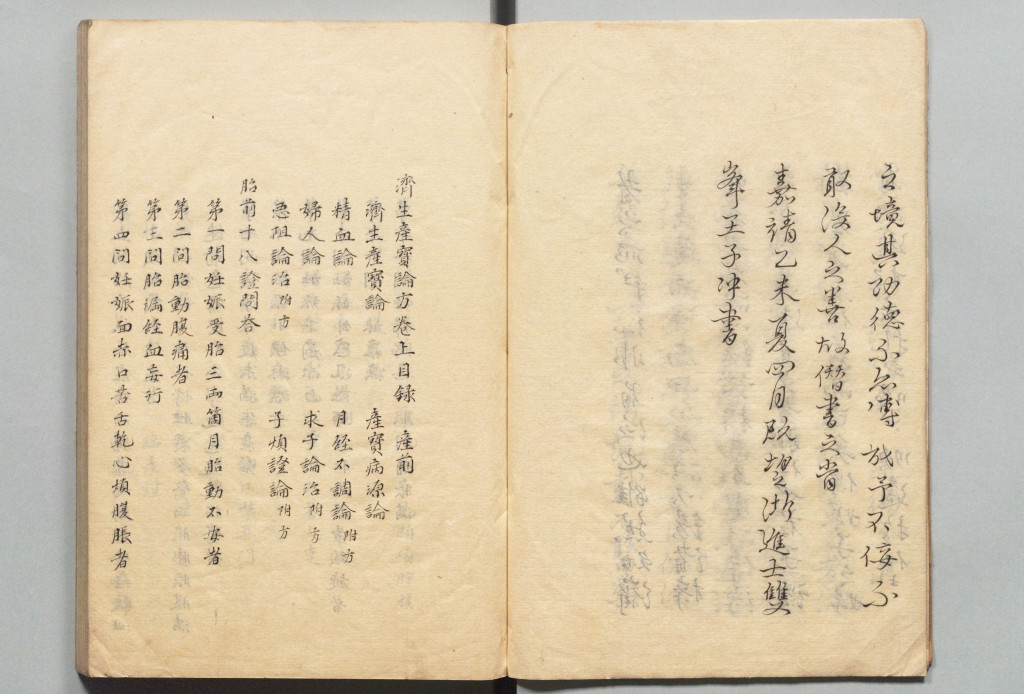 之境其功德不亦博哉予不佞不
敢沒人之善故僭書之嘗
嘉靖乙未夏四月既望浙進士雙
峯王子冲書
濟生產寶論方卷上目録 產前
濟生產寶論 產寶病源論
精血論 月經不調論附方
婦人論 求子論治附方
惡阻論治附方 子煩證論附方
胎前十八證問答
第一問妊娠受胎三兩箇月胎動不安者
第二問胎動腹痛者
第三問胎漏經血妄行
第四問妊娠面赤口苦舌乾心煩腹脹者